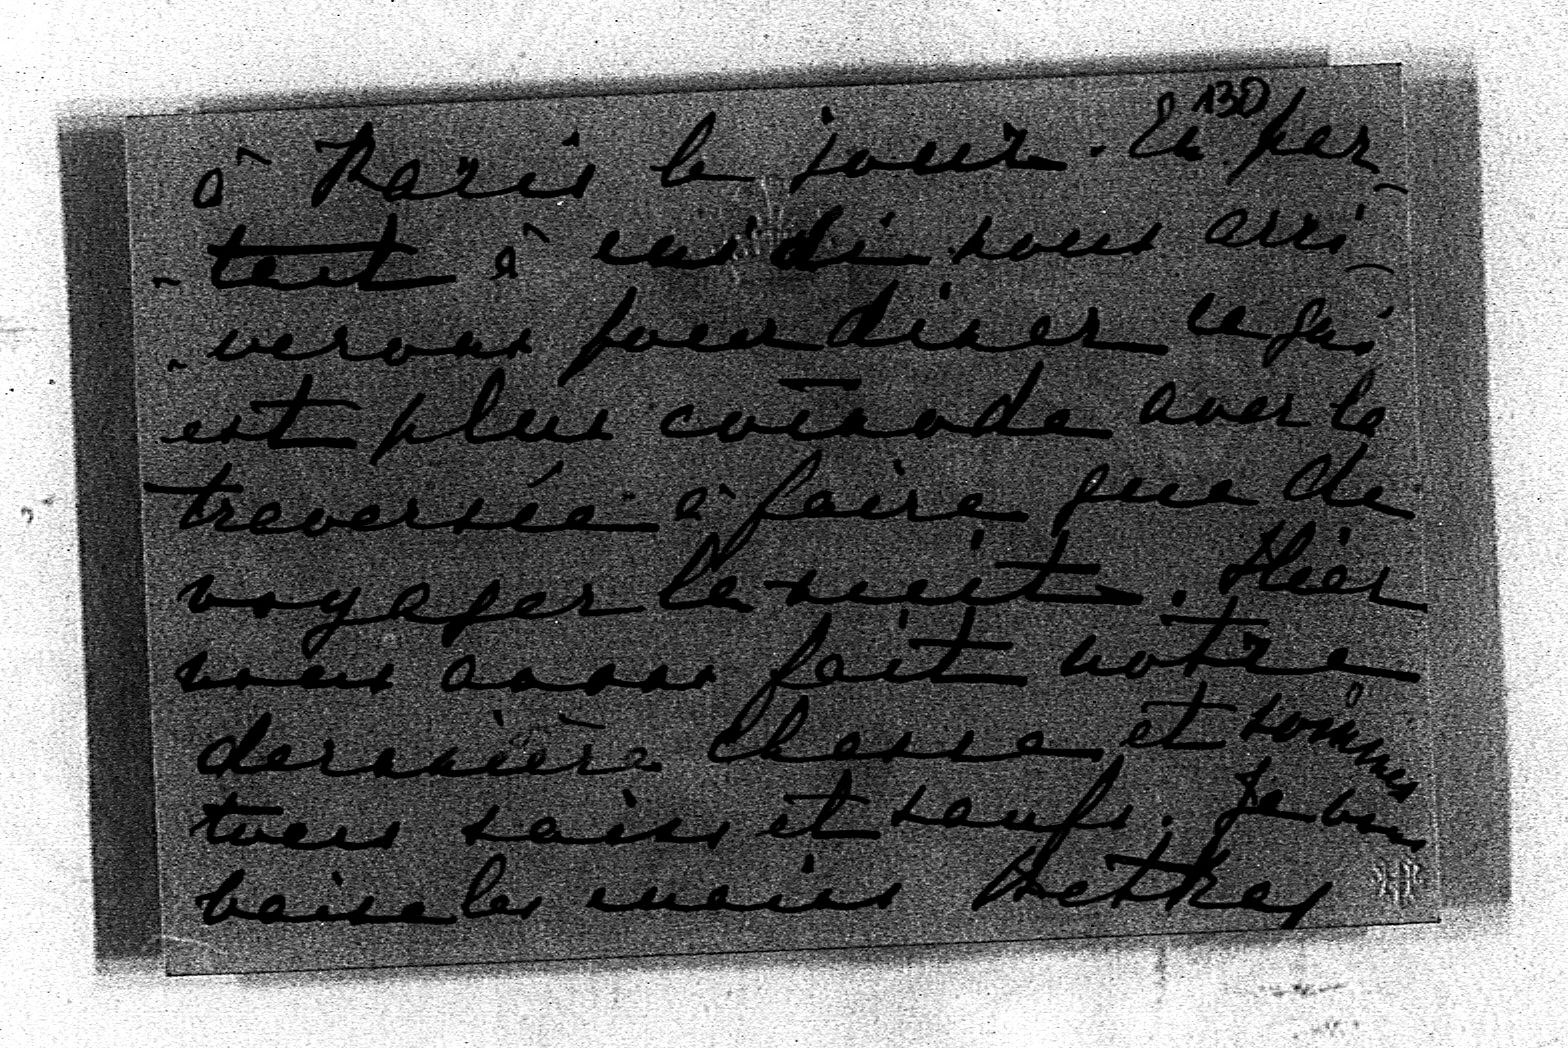 130
à Paris le jour. En par-
-tant à midi nous arri-
-verons pour diner ce qui
est plus comode avec la
traversée à faire que de
voyager la nuit. Hier
nous avons fait notre
dernière chasse et sommes
tous sains et saufs. Je vous
baise les mains